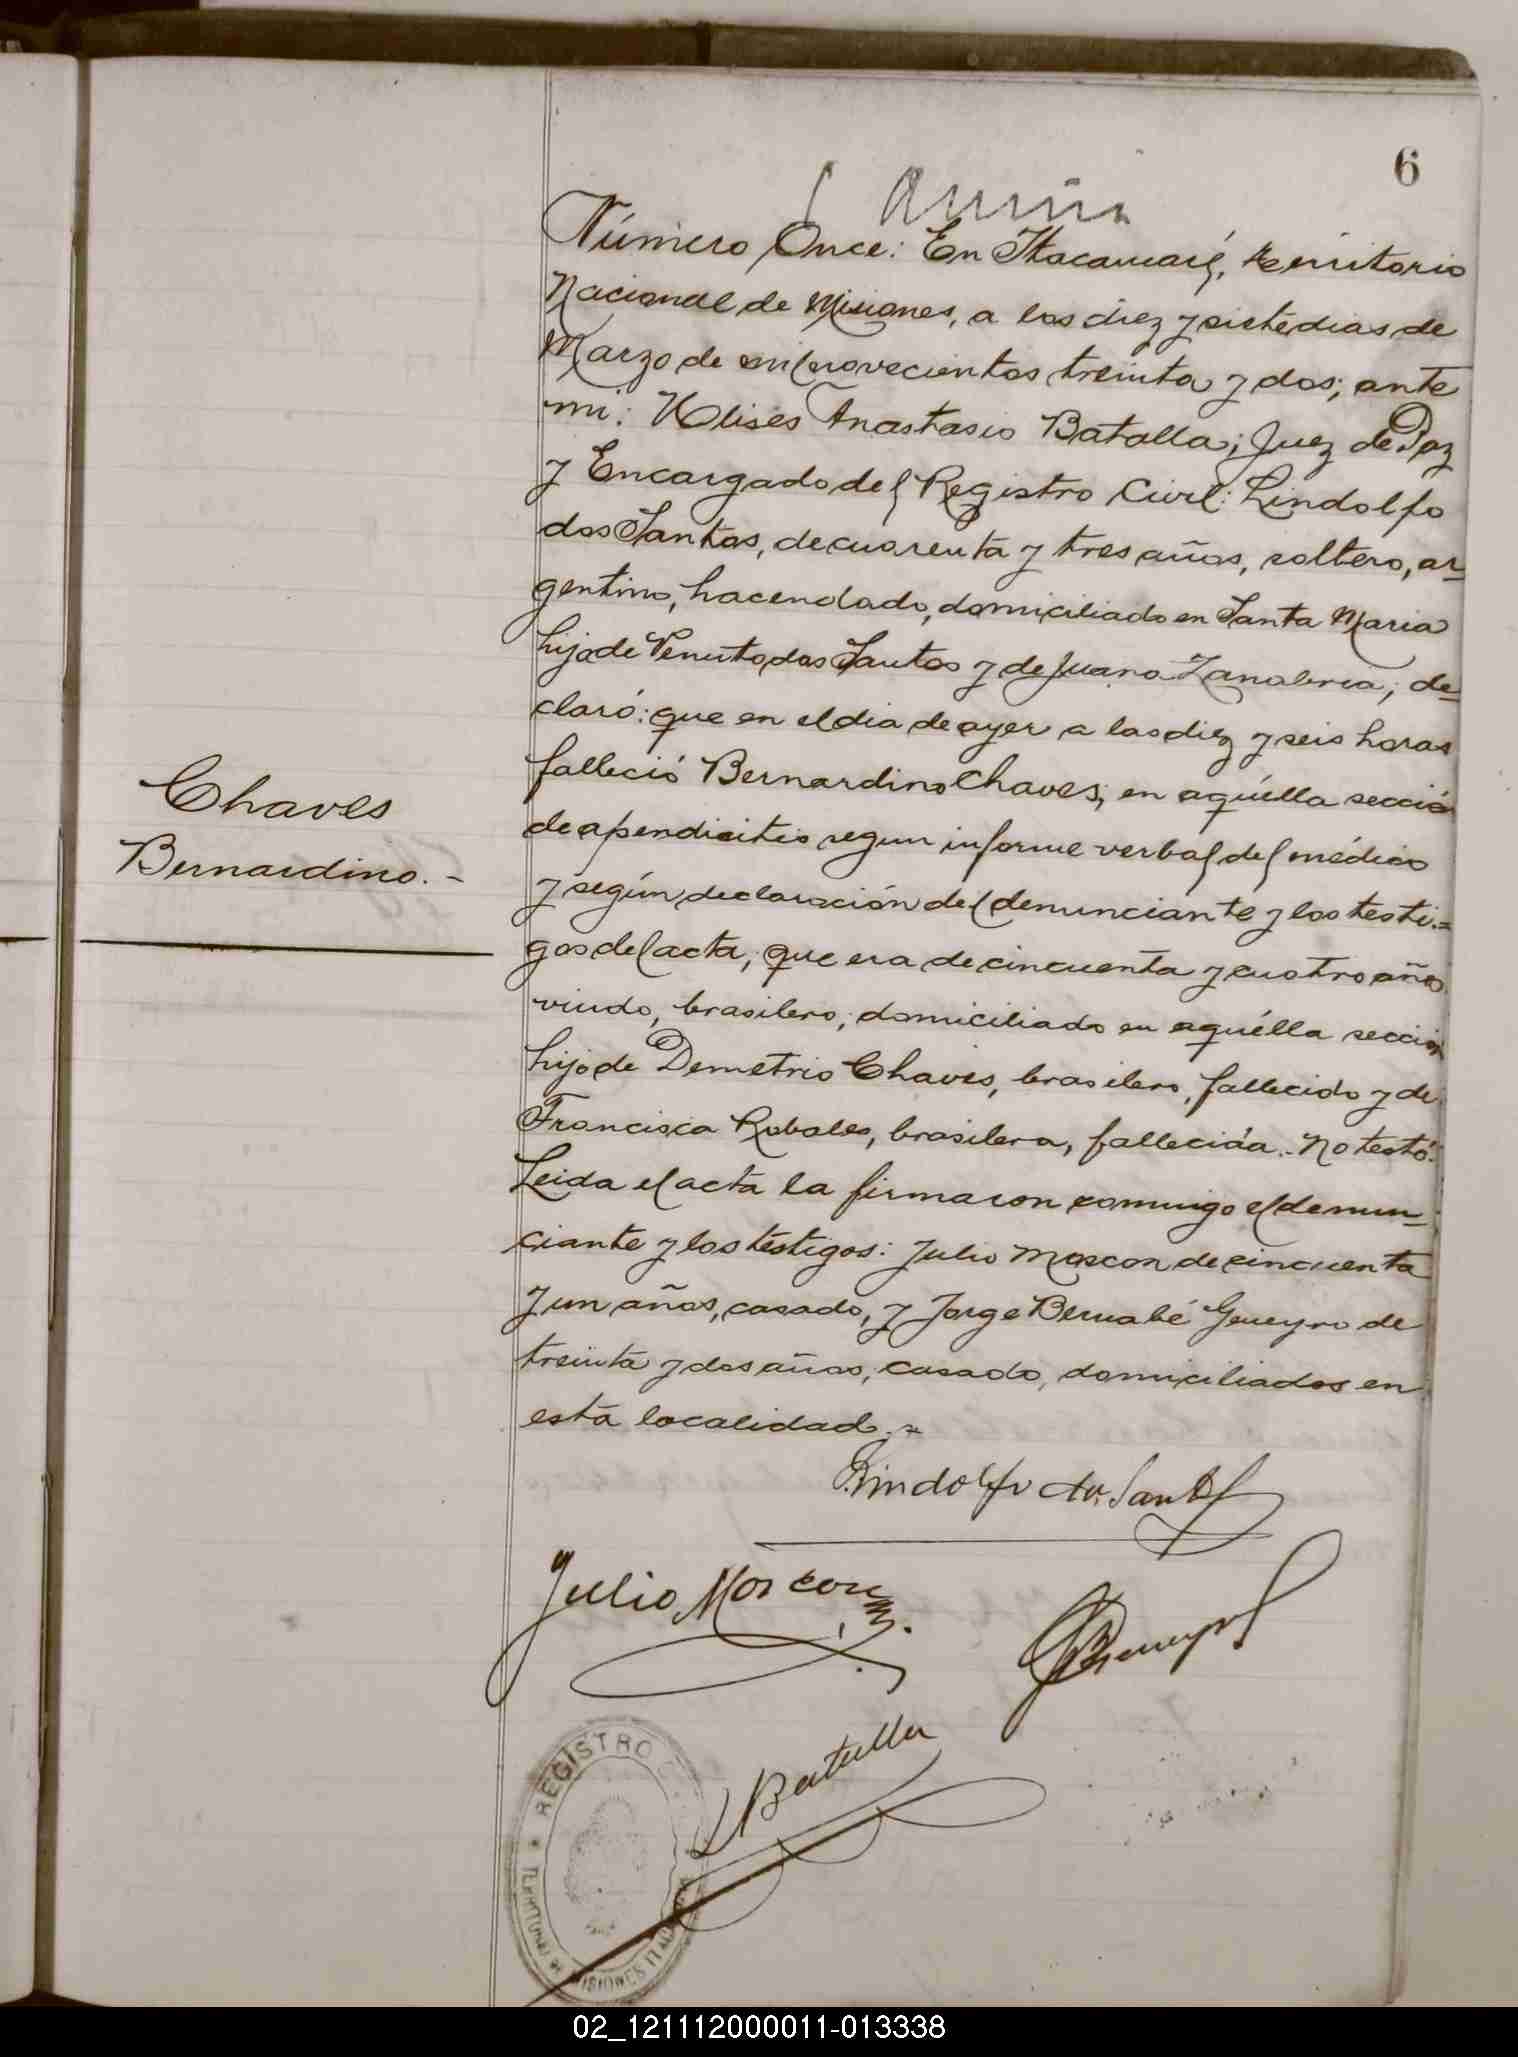 6
Número Once: En Itacaruaré, territorio
Nacional de Misiones, a los diez y siete dias de
Marzo de mil novecientos treinta y dos; ante
mi: Ulises Anastasio Batalla; Juez de Paz
y Encargado del Registro Civil: Lindolfo
dos Santos, de cuarenta y tres años, soltero, ar-
gentino, hacendado, domiciliado en Santa Maria
hijo de Venuto dos Santos y de Juana Zanabria; de-
claró: que en el dia de ayer a las diez y seis horas
falleció Bernardino Chaves; en aquélla sección
de apendicitis segun informe verbal del médico
Chaves
Bernardino.-
y según declaración del denunciante y los testi-
gos del acta; que era de cincuenta y cuatro años
viudo, brasilero; domiciliado en aquélla sección
hijo de Demetrio Chaves, brasilero, fallecido y de
Francisca Robales, brasilera, fallecida.- No testó.
Leida el acta la firmaron conmigo el denun-
ciante y los testigos: Julio Moscon de cincuenta
y un años, casado, y Jorge Bernabé Geneyro de
treinta y dos años, casado, domiciliados en
esta localidad.-
Lindolfo dos Santos
Julio Moscon
Batalla
REGISTRO
MISIONES
02_121112000011-013338